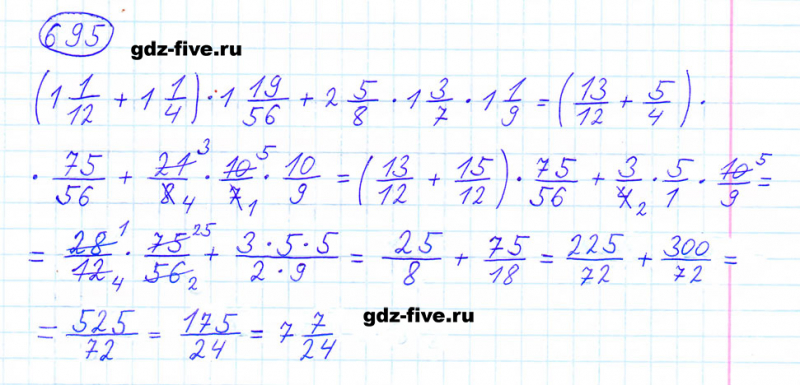 695
gdz-five.ru
(1 1/12 + 1 1/4) · 1 19/56 + 2 5/8 · 1 3/7 · 1 1/9 = (13/12 + 5/4) ·
· 75/56 + 21 3/8 4 · 10 5/7 1 · 10/9 = (13/12 + 15/12) · 75/56 + 3/4 2 · 5/1 · 10 5/9 =
= 28 1/12 4 · 75 25/56 2 + 3·5·5/2·9 = 25/8 + 75/18 = 225/72 + 300/72 =
= 525/72 = 175/24 = 7 7/24
gdz-five.ru